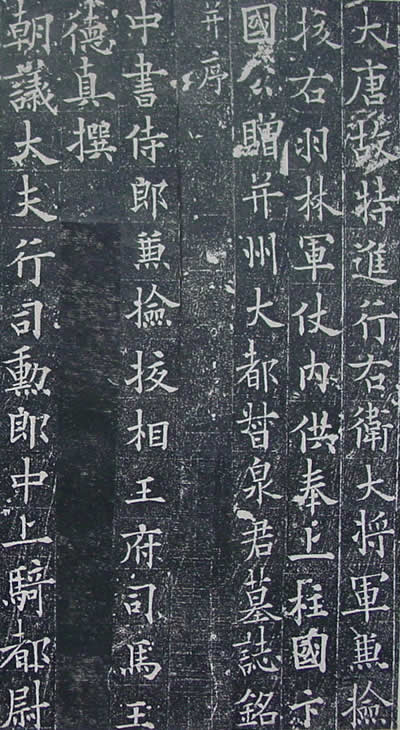 大唐故特進行右衛大將軍兼撿
挍右羽林軍仗內供奉上柱國卞
國公贈并州大都督泉君墓誌銘
并序
中書侍郎兼撿挍相王府司馬王
德真撰
朝議大夫行司勳郎中上騎都尉